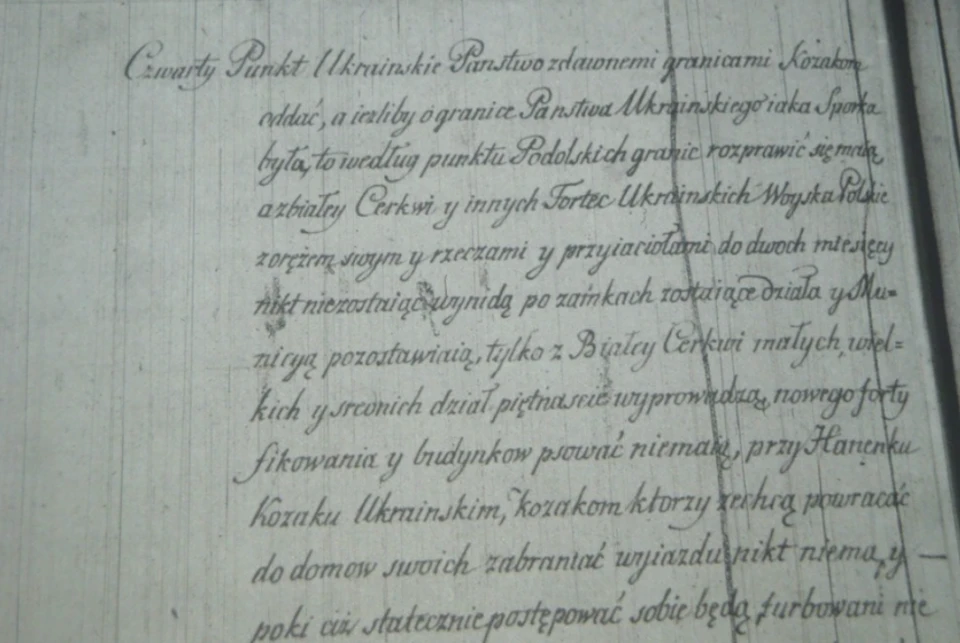 Czwarty Punkt Ukrainskie Panstwo zdawnemi granicami Kozakom
oddać, a ieżliby o granice Panstwa Ukrainskiego iaka Sporka
była, to według punktu Podolskich granic rozprawić się maią,
a zbiałey Cerkwi y innych Fortec Ukrainskich Woyska Polskie
zorężem swym y rzeczami y przyiaciołami do dwoch miesięcy
nikt niezostaiąc wynidą po zamkach zostaiące działa y Mu=
nicyą pozostawiaią, tylko z Białey Cerkwi małych, wiel=
kich y srednich dział piętnascie wyprowadzą, nowego forty
fikowania y budynkow psować niemaią, przy Hanenku
Kozaku Ukrainskim, kozakom ktorzy zechcą powracać
do domow swoich zabraniać wyiazdu nikt niema, y —
poki ciż statecznie postępować sobie będą, turbowani nie